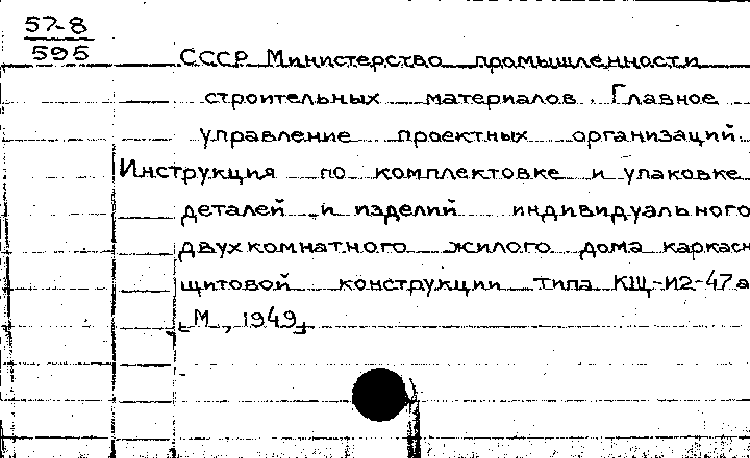 57-8
595
СССР Министерство промышленности
строительных материалов. Главное
управление проектных организаций.
Инструкция по комплектовке и упаковке
деталей и изделий индивидуального
двухкомнатного жилого дома каркасн
щитовой конструкции типа КЩ-И2-47а
[М, 1949]